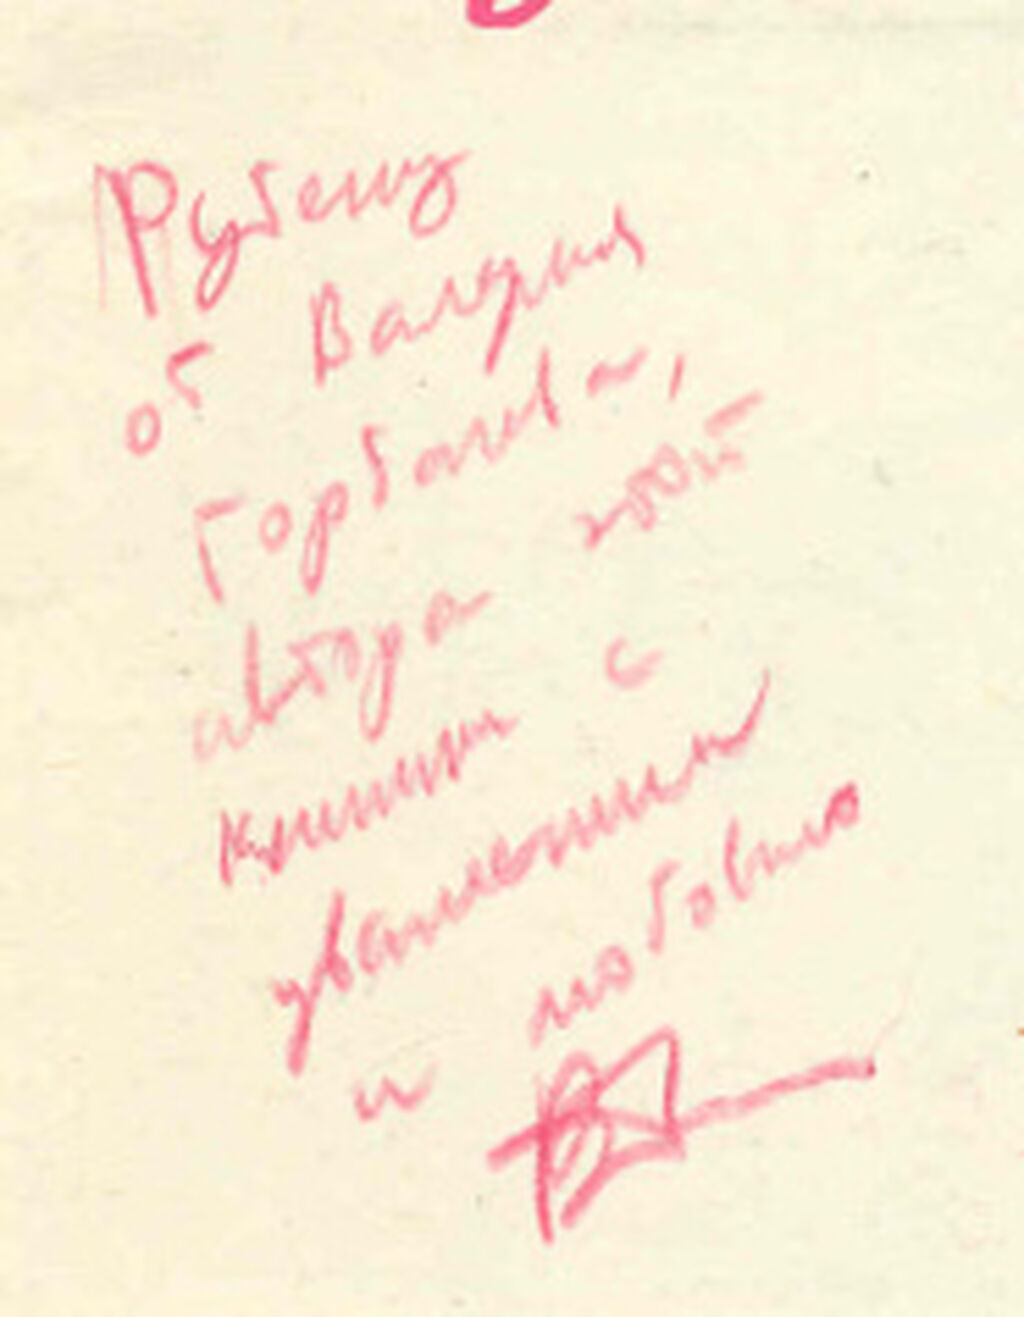 Рубену
от Валерия
Горбачева,
автора этой
книги с
уважением
и любовью